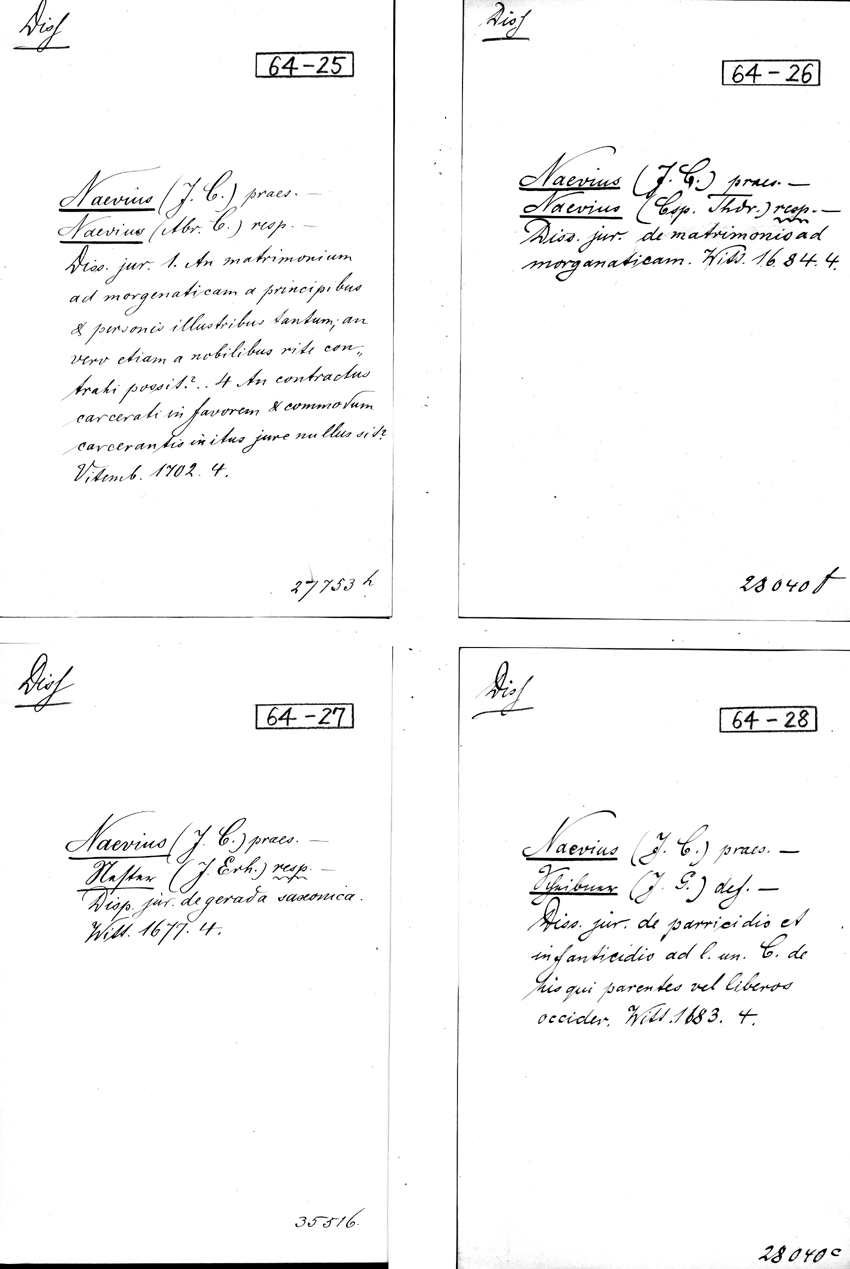 Diss
64-25
Naevius (J. C.) praes. —
Naevius (Abr. C.) resp. —
Diss. jur. 1. An matrimonium
ad morgenaticam a principibus
& personis illustribus tantum, an
vero etiam a nobilibus rite con„
trahi possit? .. 4 An contractus
carcerati in favorem & commodum
carcerantis initus jure nullus sit?
Vitemb. 1702. 4.
27753 h
Diss
64-26
Naevius (J. C.) praes. —
Naevius (Csp. Thdr.) resp. —
Diss. jur. de matrimonio ad
morganaticam. Witt. 1684. 4.
28040 f
Diss
64-27
Naevius (J. C.) praes. —
Nester (J. Erh.) resp. —
Disp. jur. de gerada saxonica.
Witt. 1677. 4.
35516.
Diss
64-28
Naevius (J. C.) praes. —
Schreibner (J. G.) def. —
Diss. jur. de parricidio et
infanticidio ad l. un. C. de
his qui parentes vel liberos
occider. Witt. 1683. 4.
28040 c